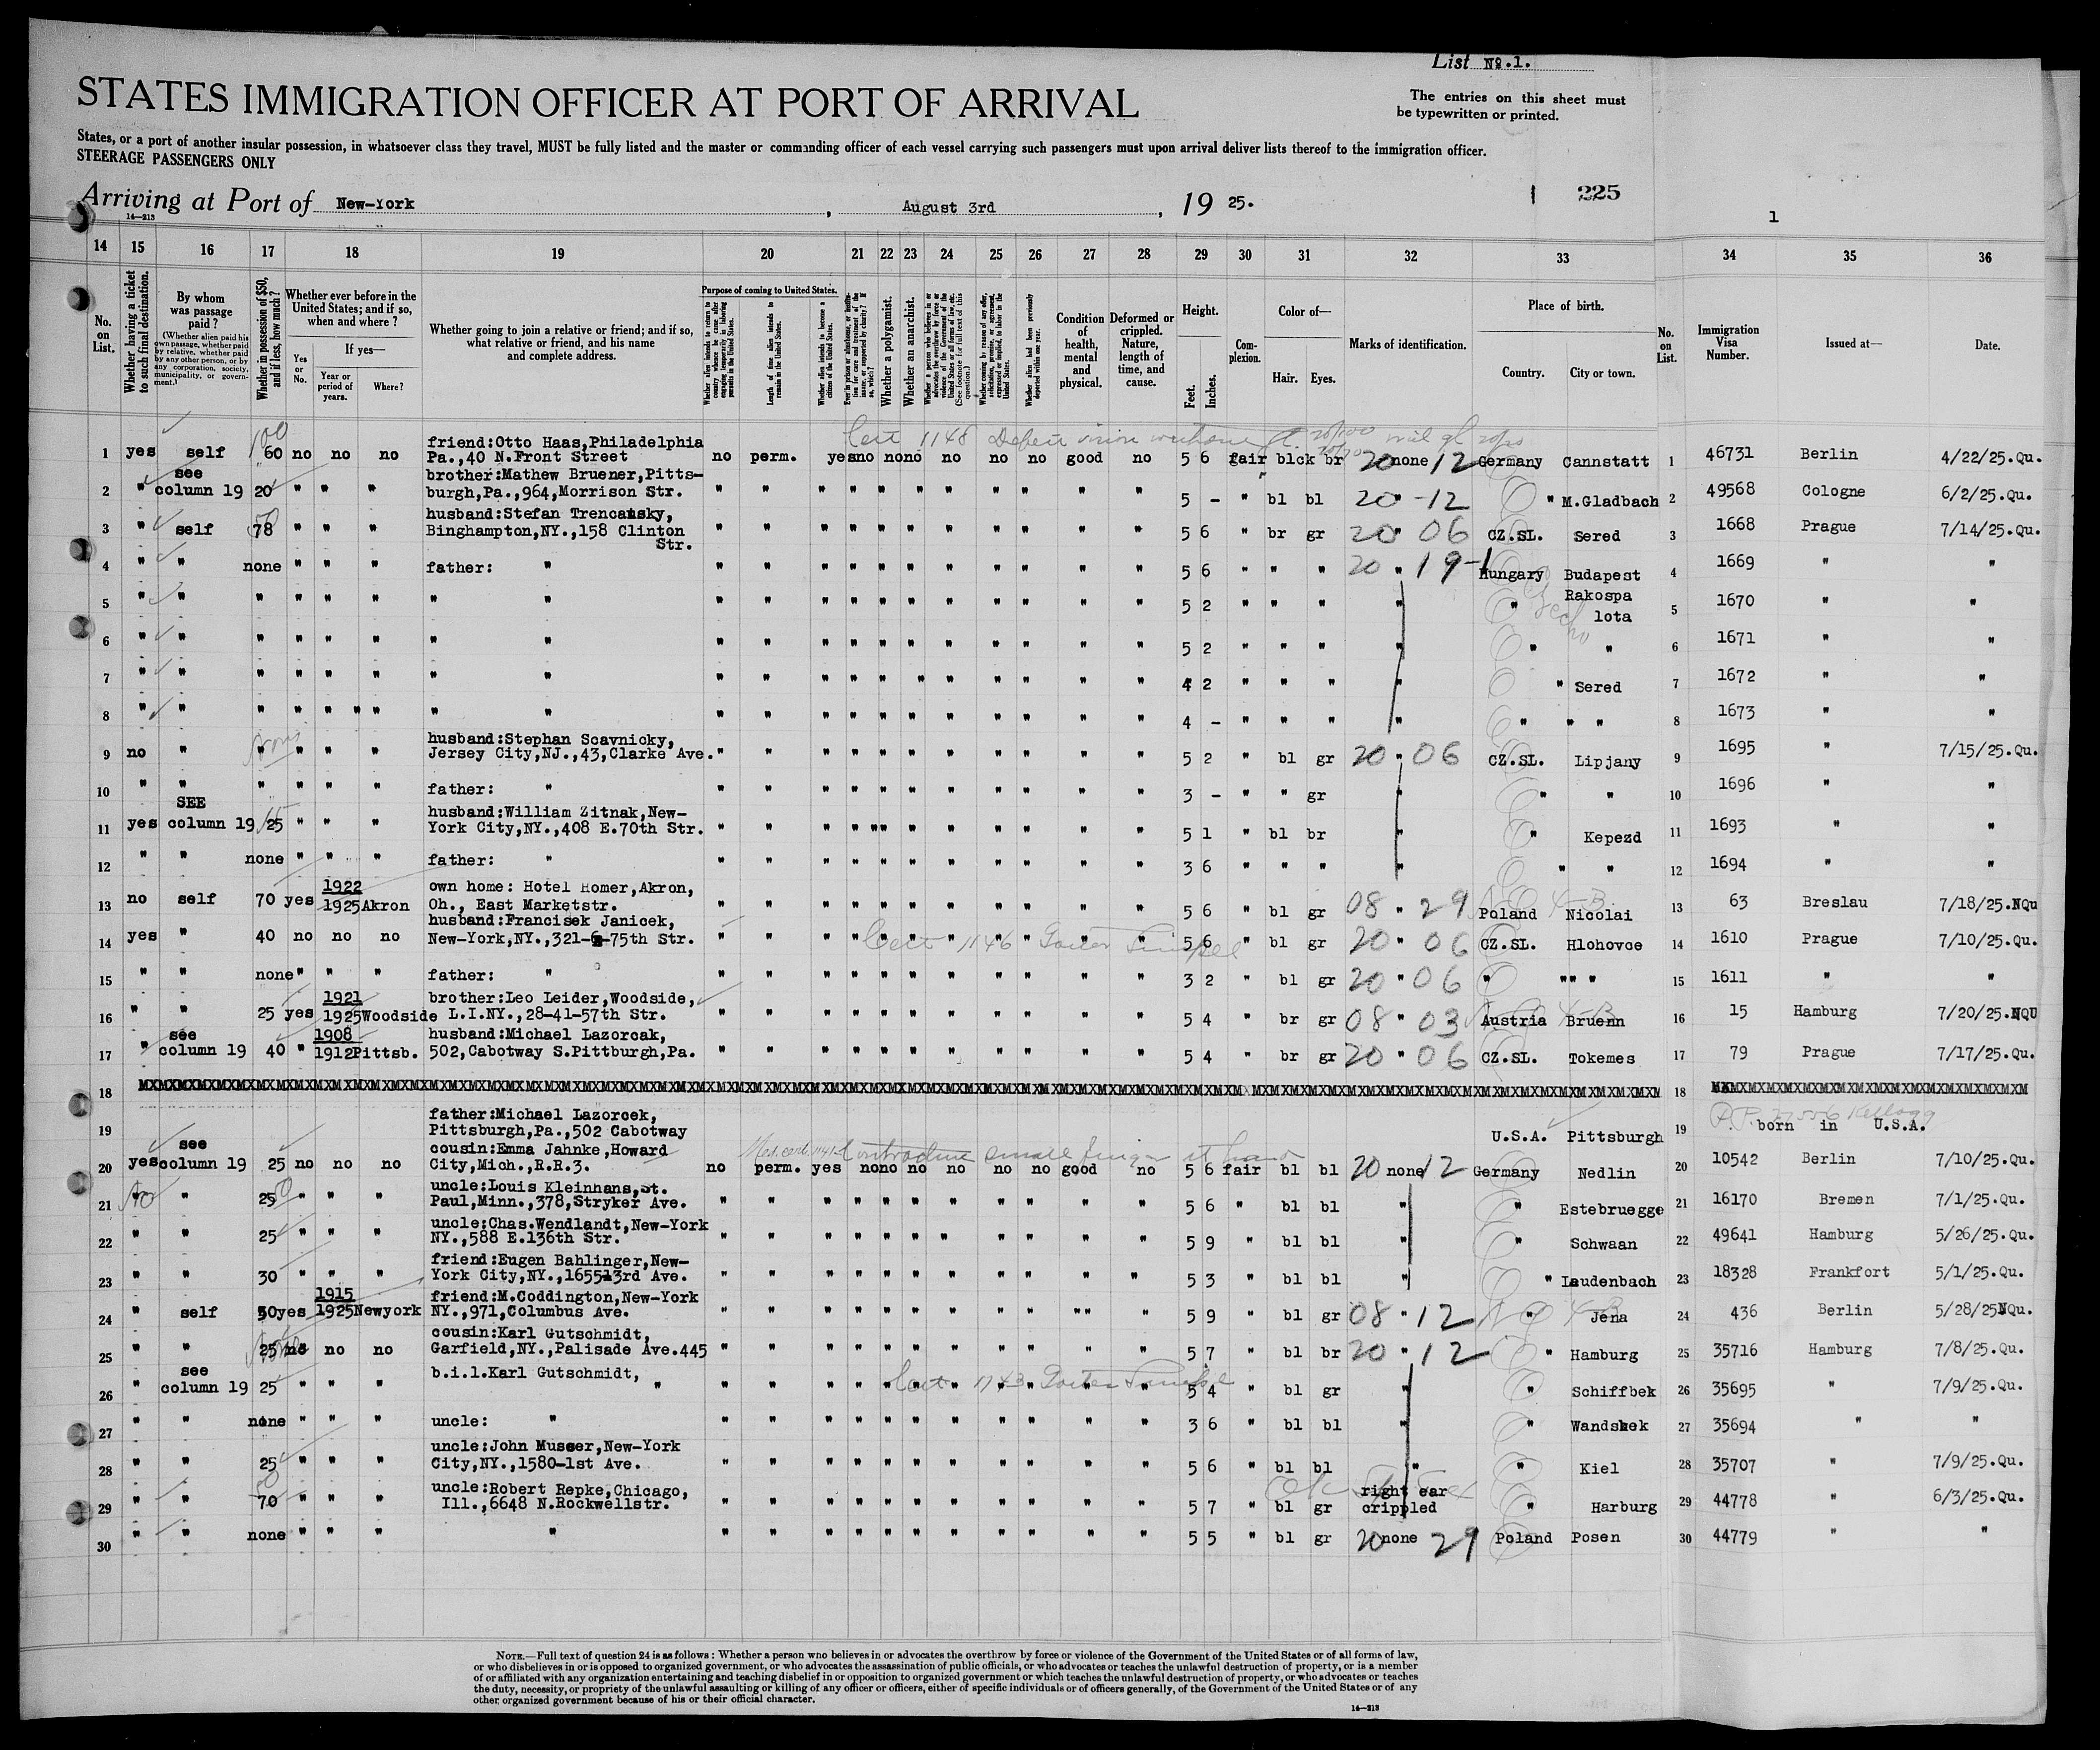 List No. 1.
STATES IMMIGRATION OFFICER AT PORT OF ARRIVAL
The entries on this sheet must
be typewritten or printed.
States, or a port of another insular possession, in whatsoever class they travel, MUST be fully listed and the master or commanding officer of each vessel carrying such passengers must upon arrival deliver lists thereof to the immigration officer.
STEERAGE PASSENGERS ONLY
Arriving at Port of New-York, August 3rd, 19 25.
225
1
14—213
14 15 16 17 18 19 20 21 22 23 24 25 26 27 28 29 30 31 32 33 34 35 36
No. on List.
Whether having a ticket to such final destination.
By whom was passage paid?
(Whether alien paid his own passage, whether paid by relative, whether paid by any other person, or by any corporation, society, municipality, or government.)
Whether in possession of $50, and if less, how much?
Whether ever before in the United States; and if so, when and where?
Yes or No.
If yes—
Year or period of years.
Where?
Whether going to join a relative or friend; and if so, what relative or friend, and his name and complete address.
Purpose of coming to United States.
Whether alien intends to return to country whence he came after engaging temporarily in laboring pursuits in the United States.
Length of time alien intends to remain in the United States.
Whether alien intends to become a citizen of the United States.
Whether a polygamist.
Whether an anarchist.
Condition of health, mental and physical.
Deformed or crippled. Nature, length of time, and cause.
Height.
Feet. Inches.
Complexion.
Color of—
Hair. Eyes.
Marks of identification.
Place of birth.
Country. City or town.
No. on List.
Immigration Visa Number.
Issued at—
Date.
Cert 1148
1 yes self 60 no no no friend:Otto Haas,Philadelphia Pa.,40 N.Front Street no perm. yes no no no no no no good no 5 6 fair blck br 20 none 12 Germany Cannstatt 1 46731 Berlin 4/22/25.Qu.
2 " see column 19 20 " " " brother:Mathew Bruener,Pittsburgh,Pa.,964,Morrison Str. " " " " " " " " " " " 5 - " bl bl 20 " -12 " M.Gladbach 2 49568 Cologne 6/2/25.Qu.
3 " self 78 " " " husband:Stefan Trencansky, Binghampton,NY.,158 Clinton Str. " " " " " " " " " " " 5 6 " br gr 20 " 06 CZ.SL. Sered 3 1668 Prague 7/14/25.Qu.
4 " " none " " " father: " " " " " " " " " " " " 5 6 " " " 20 " 19-1 Hungary Budapest 4 1669 " "
5 " " " " " " " " " " " " " " " " " " " 5 2 " " " " " Rakospalota 5 1670 " "
6 " " " " " " " " " " " " " " " " " " " 5 2 " " " " " " 6 1671 " "
7 " " " " " " " " " " " " " " " " " " " 4 2 " " " " " Sered 7 1672 " "
8 " " " " " " " " " " " " " " " " " " " 4 - " " " " " " " 8 1673 " "
9 no " " " " " husband:Stephan Scavnicky, Jersey City,NJ.,43,Clarke Ave. " " " " " " " " " " " 5 2 " bl gr 20 " 06 CZ.SL. Lipjany 9 1695 " 7/15/25.Qu.
10 " " " " " " father: " " " " " " " " " " " " 3 - " " gr " " " 10 1696 " "
11 yes SEE column 19 25 " " " husband:William Zitnak,New-York City,NY.,408 E.70th Str. " " " " " " " " " " " 5 1 " bl br " " Kepezd 11 1693 " "
12 " " none " " " father: " " " " " " " " " " " " 3 6 " " " " " " 12 1694 " "
13 no self 70 yes 1922 1925 Akron own home: Hotel Homer,Akron, Oh., East Marketstr. " " " " " " " " " " " 5 6 " bl gr 08 " 29 Poland Nicolai 13 63 Breslau 7/18/25.NQu
Cert 1146 Goiter Simple
14 yes " 40 no no no husband:Francisek Janicek, New-York,NY.,321-6-75th Str. " " " " " " " " " " " 5 6 " bl gr 20 " 06 CZ.SL. Hlohovce 14 1610 Prague 7/10/25.Qu.
15 " " none " " " father: " " " " " " " " " " " " 3 2 " bl gr 20 " 06 " " " " 15 1611 " "
16 " " 25 yes 1921 1925 Woodside brother:Leo Leider,Woodside, L.I.NY.,28-41-57th Str. " " " " " " " " " " " 5 4 " br gr 08 " 03 Austria Bruenn 16 15 Hamburg 7/20/25.NQU
17 " see column 19 40 " 1908 1912 Pittsb. husband:Michael Lazorcak, 502,Cabotway S.Pittburgh,Pa. " " " " " " " " " " " 5 4 " br gr 20 " 06 CZ.SL. Tokemes 17 79 Prague 7/17/25.Qu.
18 18
19 father:Michael Lazorcek, Pittsburgh,Pa.,502 Cabotway U.S.A. Pittsburgh 19 born in U.S.A.
Med. cert. 1141 Contracture small finger rt hand
20 yes see column 19 25 no no no cousin:Emma Jahnke,Howard City,Mich.,R.R.3. no perm. yes no no no no no no good no 5 6 fair bl bl 20 none 12 Germany Nedlin 20 10542 Berlin 7/10/25.Qu.
21 No " 25 " " " uncle:Louis Kleinhans,St. Paul,Minn.,378,Stryker Ave. " " " " " " " " " " " 5 6 " bl bl " " Estebruegge 21 16170 Bremen 7/1/25.Qu.
22 " " 25 " " " uncle:Chas.Wendlandt,New-York NY.,588 E.136th Str. " " " " " " " " " " " 5 9 " bl bl " " Schwaan 22 49641 Hamburg 5/26/25.Qu.
23 " " 30 " " " friend:Eugen Bahlinger,New-York City,NY.,1655-3rd Ave. " " " " " " " " " " " 5 3 " bl bl " " Laudenbach 23 18328 Frankfort 5/1/25.Qu.
24 " self 50 yes 1915 1925 Newyork friend:M.Coddington,New-York NY.,971,Columbus Ave. " " " " " " " " " " " 5 9 " bl gr 08 " 12 " Jena 24 436 Berlin 5/28/25NQu.
25 " " 25 no no no cousin:Karl Gutschmidt, Garfield,NY.,Palisade Ave.445 " " " " " " " " " " " 5 7 " bl br 20 " 12 " Hamburg 25 35716 Hamburg 7/8/25.Qu.
Cert 1143 Goiter Simple
26 " see column 19 25 " " " b.i.l.Karl Gutschmidt, " " " " " " " " " " " " 5 4 " bl gr " " Schiffbek 26 35695 " 7/9/25.Qu.
27 " " none " " " uncle: " " " " " " " " " " " " 3 6 " bl bl " " Wandsbek 27 35694 " "
28 " " 25 " " " uncle:John Musser,New-York City,NY.,1580-1st Ave. " " " " " " " " " " " 5 6 " bl bl " " Kiel 28 35707 " 7/9/25.Qu.
29 " " 70 " " " uncle:Robert Repke,Chicago, Ill.,6648 N.Rockwellstr. " " " " " " " " " " " 5 7 " bl gr right ear crippled " Harburg 29 44778 " 6/3/25.Qu.
30 " " none " " " " " " " " " " " " " " " 5 5 " bl gr 20 none 29 Poland Posen 30 44779 " "
NOTE.—Full text of question 24 is as follows: Whether a person who believes in or advocates the overthrow by force or violence of the Government of the United States or of all forms of law,
or who disbelieves in or is opposed to organized government, or who advocates the assassination of public officials, or who advocates or teaches the unlawful destruction of property, or is a member
of or affiliated with any organization entertaining and teaching disbelief in or opposition to organized government or which teaches the unlawful destruction of property, or who advocates or teaches
the duty, necessity, or propriety of the unlawful assaulting or killing of any officer or officers, either of specific individuals or of officers generally, of the Government of the United States or of any
other organized government because of his or their official character.
14—213